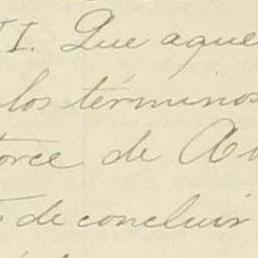 I. Que aque
los términos
orce de A
de concluir